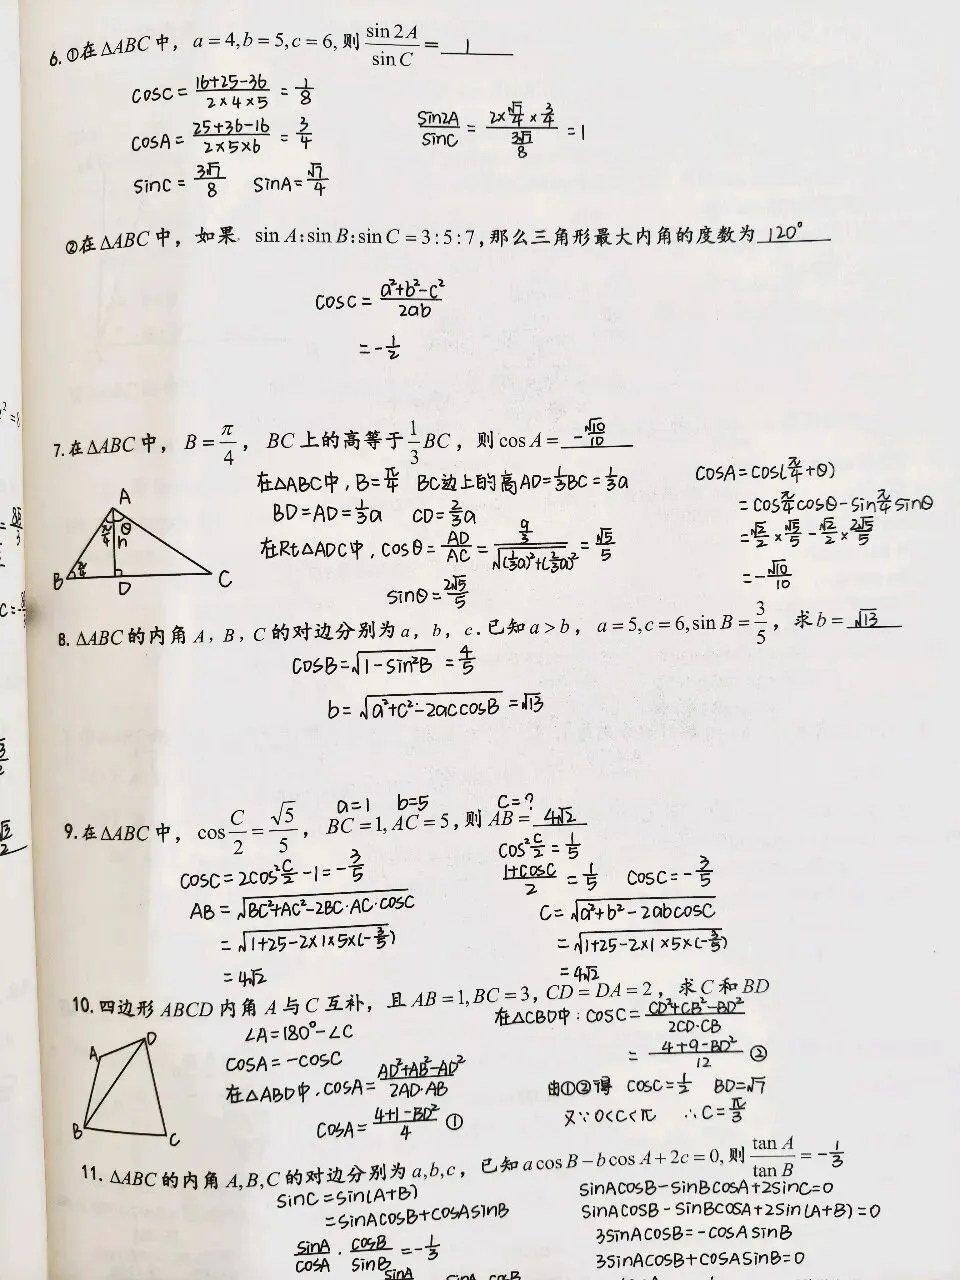 6.①在△ABC中，a=4,b=5,c=6,则 sin2A/sinC = 1
cosC = (16+25-36)/(2×4×5) = 1/8
cosA = (25+36-16)/(2×5×6) = 3/4
sin2A/sinC = (2×√7/4×3/4)/(3√7/8) = 1
sinC = 3√7/8 sinA = √7/4
②在△ABC中，如果 sinA:sinB:sinC=3:5:7,那么三角形最大内角的度数为 120°
cosC = (a²+b²-c²)/2ab
= -1/2
7.在△ABC中，B=π/4，BC上的高等于1/3BC，则cosA= -√10/10
在△ABC中，B=π/4 BC边上的高AD=1/3BC=1/3a
BD=AD=1/3a CD=2/3a
在Rt△ADC中，cosθ=AD/AC=(a/3)/√((1/3a)²+(2/3a)²)=√5/5
sinθ=2√5/5
cosA=cos(π/4+θ)
=cosπ/4cosθ-sinπ/4sinθ
=√2/2×√5/5-√2/2×2√5/5
=-√10/10
A
π/4 θ
h
B π/4 D C
8.△ABC的内角A，B，C的对边分别为a，b，c.已知a>b，a=5,c=6,sinB=3/5，求b= √13
cosB=√(1-sin²B)=4/5
b=√(a²+c²-2accosB)=√13
a=1 b=5 c=?
9.在△ABC中，cosC/2=√5/5，BC=1,AC=5,则AB= 4√2
cosC=2cos²C/2-1=-3/5
AB=√(BC²+AC²-2BC·AC·cosC)
=√(1+25-2×1×5×(-3/5))
=4√2
cos²C/2=1/5
(1+cosC)/2=1/5 cosC=-3/5
C=√(a²+b²-2abcosC)
=√(1+25-2×1×5×(-3/5))
=4√2
10.四边形ABCD内角A与C互补，且AB=1,BC=3,CD=DA=2，求C和BD
∠A=180°-∠C
cosA=-cosC
在△ABD中,cosA=(AD²+AB²-AD²)/(2AD·AB)
cosA=(4+1-BD²)/4 ①
在△CBD中：cosC=(CD²+CB²-BD²)/(2CD·CB)
=(4+9-BD²)/12 ②
由①②得 cosC=1/2 BD=√7
又∵0<C<π ∴C=π/3
D
A
B C
11.△ABC的内角A,B,C的对边分别为a,b,c，已知acosB-bcosA+2c=0,则tanA/tanB=-1/3
sinC=sin(A+B)
=sinAcosB+cosAsinB
sinA/cosA·cosB/sinB=-1/3
sinAcosB-sinBcosA+2sinC=0
sinAcosB-sinBcosA+2sin(A+B)=0
3sinAcosB=-cosAsinB
3sinAcosB+cosAsinB=0